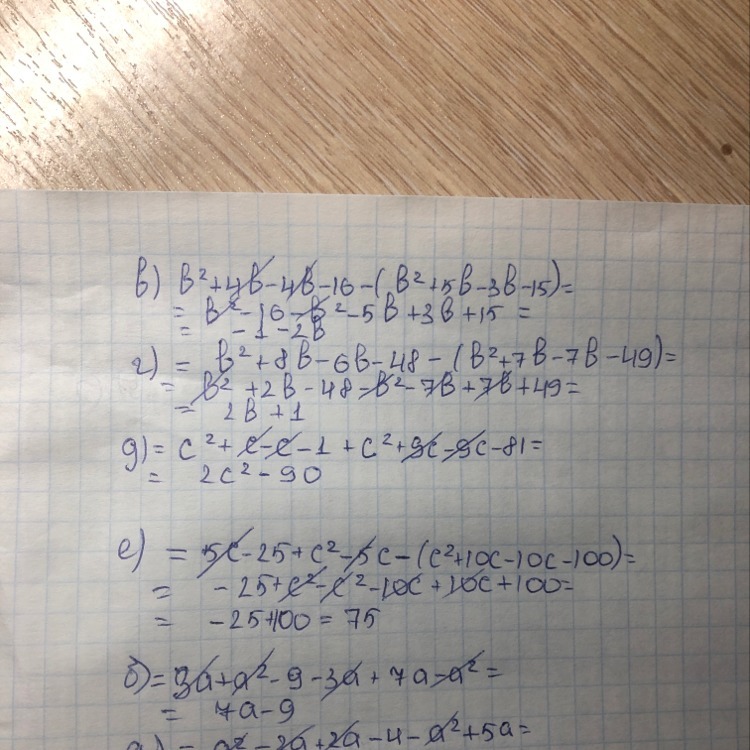 в) в²+4в-4в-16-(в²+5в-3в-15)=
= в²-16-в²-5в+3в+15=
= -1-2в
г) = в²+8в-6в-48-(в²+7в-7в-49)=
= в²+2в-48-в²-7в+7в+49=
= 2в+1
д) = c²+c-c-1+c²+9c-9c-81=
= 2c²-90
е) = 5c-25+c²-5c-(c²+10c-10c-100)=
= -25+c²-c²-10c+10c+100=
= -25+100=75
б) = 3a+a²-9-3a+7a-a²=
= 7a-9
а) = a²-2a+2a-4-a²+5a=